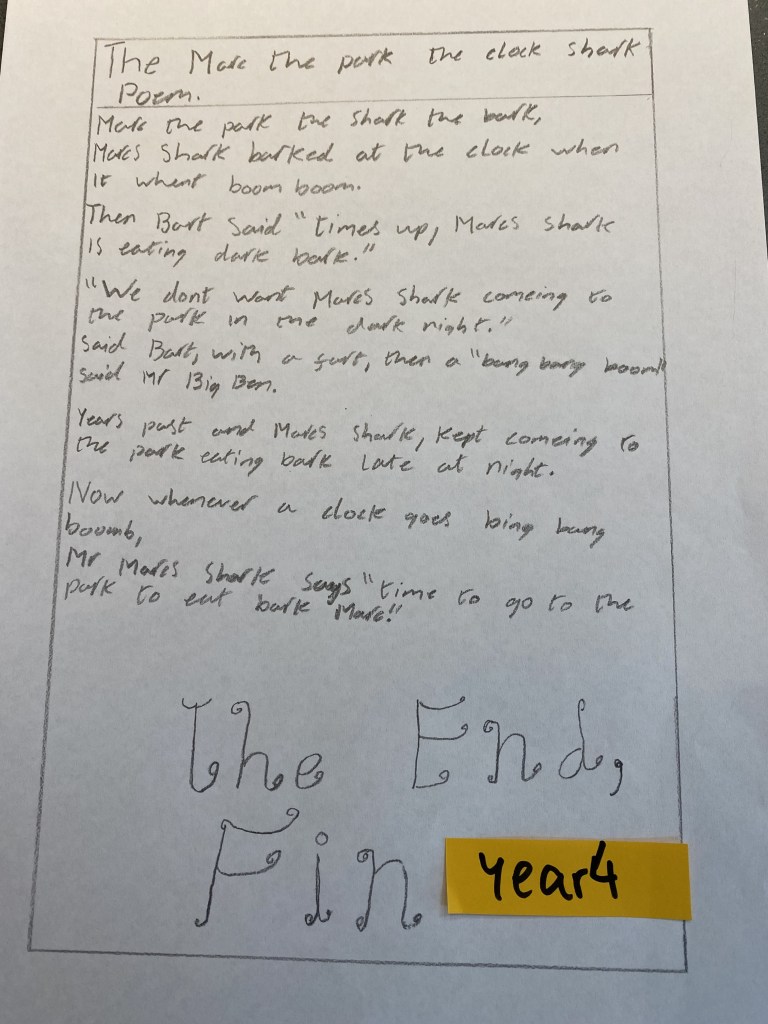 The Marc the park the clock shark
Poem.
Marc the park the shark the bark,
Marcs Shark barked at the clock when
it whent boom boom.
Then Bart said "times up, Marcs shark
is eating dark bark."
"We dont want Marcs Shark comeing to
the park in the dark night."
Said Bart, with a fart, then a "bang bang boom"
said Mr Big Ben.
Years past and Marcs shark, kept comeing to
the park eating bark late at night.
Now whenever a clock goes bing bang
boomb,
Mr Marcs Shark says "time to go to the
park to eat bark Marc!"
The End,
Fin
Year4